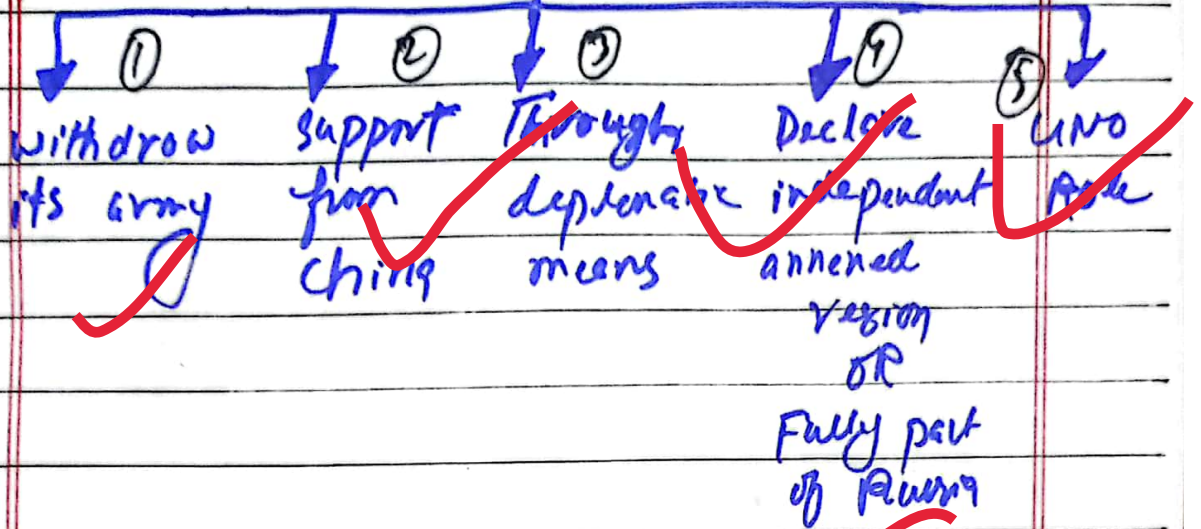 ①
withdrow
its army
②
support
from
China
③
Through
deplomatic
means
④
Declare
independant
annexed
region
OR
Fully part
of Russia
⑤
UNO
Role